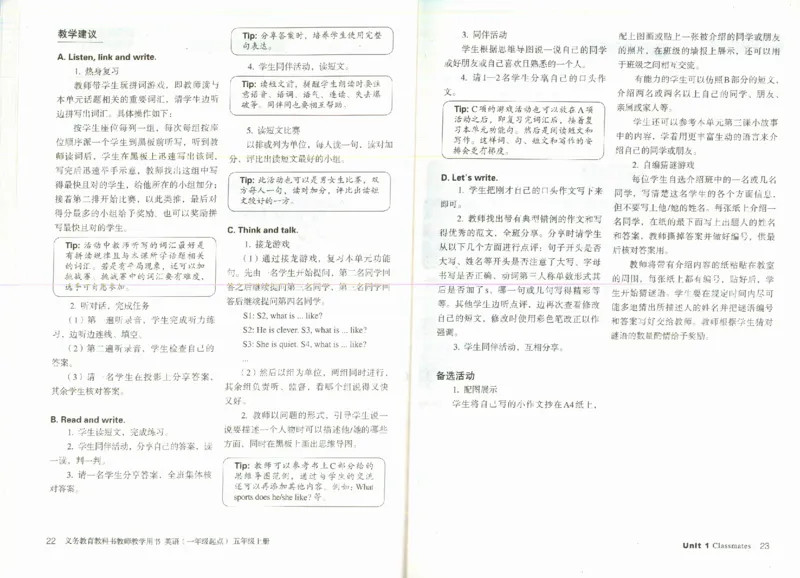 教学建议
A. Listen, link and write.
1. 热身复习
教师带学生玩拼词游戏，即教师读与
本单元话题相关的重要词汇，请学生边听
边拼写出词汇。具体操作如下：
按学生座位每列一组，每次每组按座
位顺序派一个学生到黑板前听写，听到教
师读词后，学生在黑板上迅速写出该词，
写完后迅速举手示意，教师找出这组中写
得最快且对的学生，给他所在的小组加分；
接着第二排开始比赛，以此类推，最后对
得分最多的小组给予奖励，也可以奖励拼
写最快且对的学生。
Tip: 活动中教师听写的词汇最好是
有拼读规律且与本课所学话题相关
的词汇。若是有平局现象，还可以加
挑战赛，挑战赛中的词汇要有难度，
选手可自愿参加。
2. 听对话，完成任务
（1）第一遍听录音，学生完成听力练
习，边听边连线、填空。
（2）第二遍听录音，学生检查自己的
答案。
（3）请一名学生在投影上分享答案，
其余学生核对答案。
B. Read and write.
1. 学生读短文，完成练习。
2. 学生同伴活动，分享自己的答案，读
一读，判一判。
3. 请一名学生分享答案，全班集体核
对答案。
Tip: 分享答案时，培养学生使用完整
句表达。
4. 学生同伴活动，读短文。
Tip: 读短文前，提醒学生朗读时要注
意语音、语调、语气、连读、失去爆
破等。同伴间也要相互帮助。
5. 读短文比赛
以排或列为单位，每人读一句，读对加
分，评比出读短文最好的小组。
Tip: 此活动也可以是男女生比赛，双
方每人一句，读对加分，评比出读短
文较好的一方。
C. Think and talk.
1. 接龙游戏
（1）通过接龙游戏，复习本单元功能
句。先由一名学生开始提问，第二名同学回
答之后继续提问第三名同学，第三名同学回
答后继续提问第四名同学。
S1: S2, what is ... like?
S2: He is clever. S3, what is ... like?
S3: She is quiet. S4, what is ... like?
...
（2）然后以组为单位，两组同时进行，
其余组负责听、监督，看哪个组说得又快
又好。
2. 教师以问题的形式，引导学生说一
说要描述一个人物时可以描述他/她的哪些
方面，同时在黑板上画出思维导图。
Tip: 教师可以参考书上C部分给的
思维导图范例，通过与学生的交流
还可以再添加其他内容。例如：What
sports does he/she like? 等。
22 义务教育教科书教师教学用书 英语（一年级起点） 五年级上册
3. 同伴活动
学生根据思维导图说一说自己的同学
或好朋友或自己喜欢且熟悉的一个人。
4. 请1~2名学生分享自己的口头作
文。
Tip: C项的游戏活动也可以放在A项
活动之后，即复习完词汇后，接着复
习本单元功能句。然后是阅读短文和
写作。这样词、句、短文和写作的安
排会更有梯度。
D. Let's write.
1. 学生把刚才自己的口头作文写下来
即可。
2. 教师找出带有典型错例的作文和写
得优秀的范文，全班分享。分享时请学生
从以下几个方面进行点评：句子开头是否
大写、姓名等开头是否注意了大写、字母
书写是否正确、动词第三人称单数形式其
后是否加了s、哪一句或几句写得精彩等
等。其他学生边听点评，边再次查看修改
自己的短文，修改时使用彩色笔改正以作
强调。
3. 学生同伴活动，互相分享。
备选活动
1. 配图展示
学生将自己写的小作文抄在A4纸上，
配上图画或贴上一张被介绍的同学或朋友
的照片，在班级的墙报上展示，还可以用
于班级之间相互交流。
有能力的学生可以仿照B部分的短文，
介绍两名或两名以上自己的同学、朋友、
亲属或家人等。
学生还可以参考本单元第二课小故事
中的内容，学着用更丰富生动的语言来介
绍自己的同学或朋友。
2. 自编猜谜游戏
每位学生自选介绍班中的一名或几名
同学，写清楚这名学生的各个方面信息，
但不要写上他/她的姓名。每张纸上介绍一
名同学，在纸的最下面写上出题人的姓名
和答案，教师撕掉答案并做好编号，供最
后核对答案用。
教师将带有介绍内容的纸粘贴在教室
的周围，每张纸上都有编号，贴好后，学
生开始猜谜语。学生要在规定时间内尽可
能多地猜出所描述人的姓名并把谜语编号
和答案写好交给教师。教师根据学生猜对
谜语的数量酌情给予奖励。
Unit 1 Classmates 23